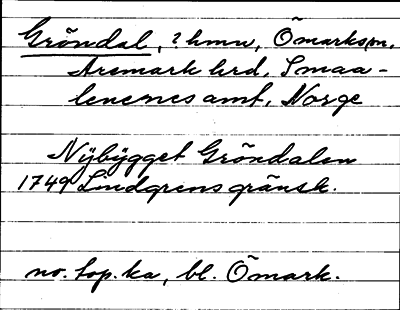 Gröndal, 2 hmn, Ömarks sn,
Aremark hrd, Smaa-
lenenes amt, Norge
Nÿbÿgget Gröndalen
1749 Lindgrens gränsk.
no. top. ka, bl. Ömark.